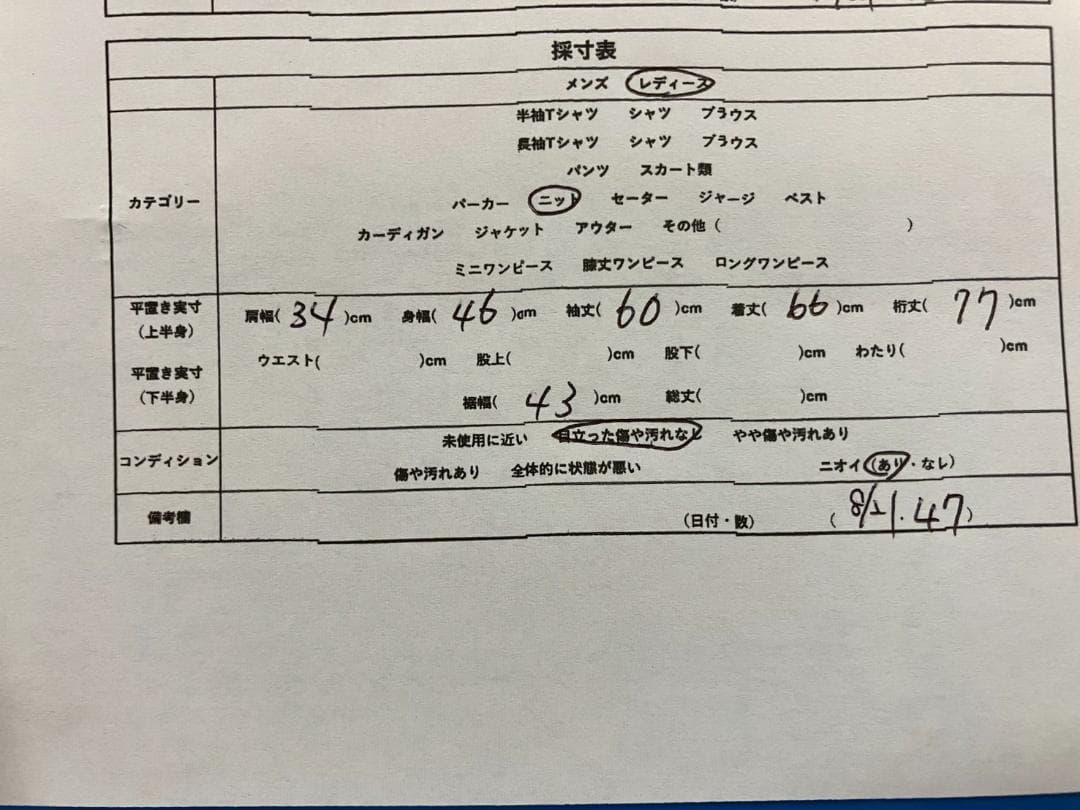 採寸表
メンズ レディース
カテゴリー
半袖Tシャツ シャツ ブラウス
長袖Tシャツ シャツ ブラウス
パンツ スカート類
パーカー ニット セーター ジャージ ベスト
カーディガン ジャケット アウター その他（ ）
ミニワンピース 膝丈ワンピース ロングワンピース
平置き実寸
（上半身）
肩幅( 34 )cm 身幅( 46 )cm 袖丈( 60 )cm 着丈( 66 )cm 裄丈( 77 )cm
平置き実寸
（下半身）
ウエスト( )cm 股上( )cm 股下( )cm わたり( )cm
裾幅( 43 )cm 総丈( )cm
コンディション
未使用に近い 目立った傷や汚れなし やや傷や汚れあり
傷や汚れあり 全体的に状態が悪い ニオイ（あり・なし）
備考欄
（日付・数） ( 47 )